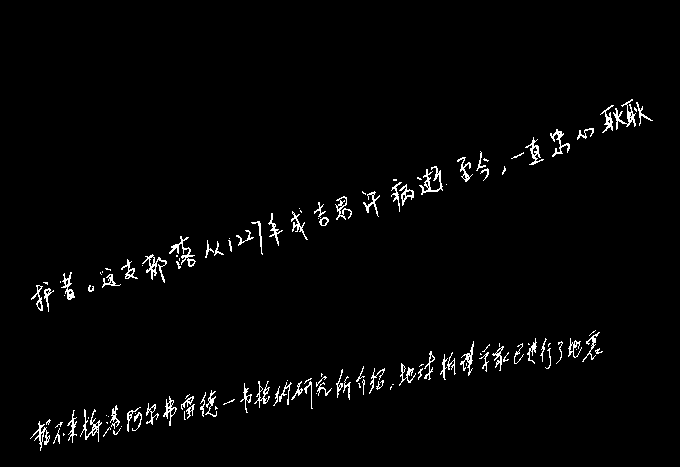 护者。这支部落从1227年成吉思汗病逝至今,一直忠心耿耿
据不来梅港阿尔弗雷德一韦格纳研究所介绍,地球物理学家已进行了地震